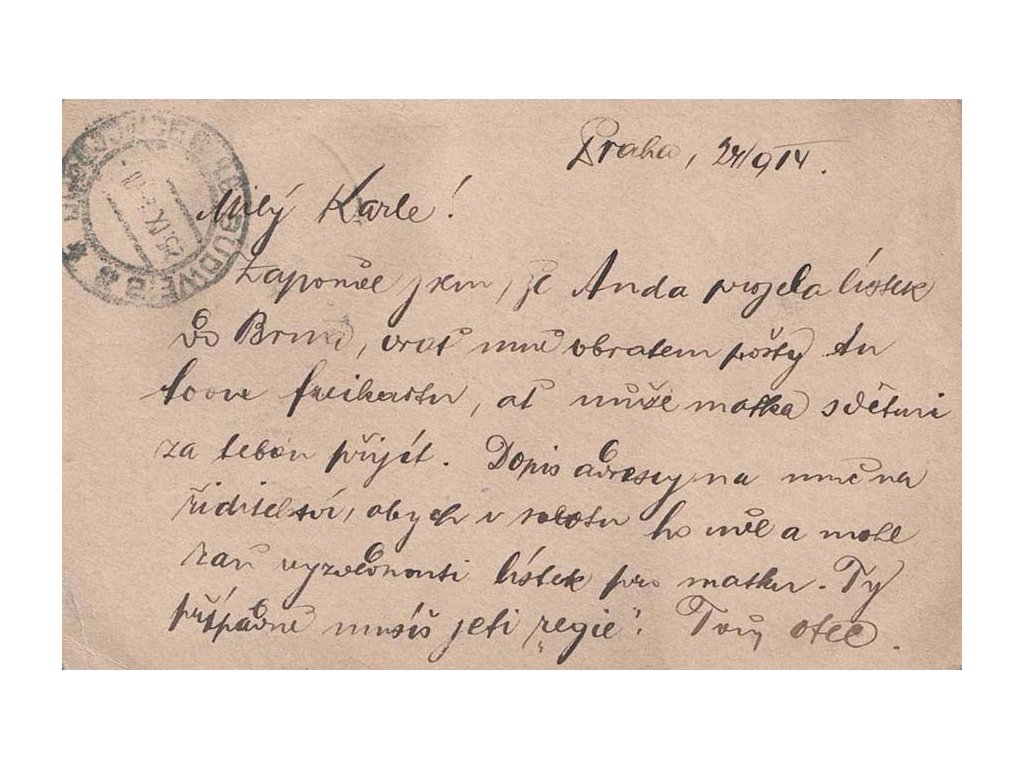 Praha, 24/9 14.
Milý Karle!
Zapomněl jsem, že Anda projela lístek
do Brna, vrať mně obratem pošty
freikartu, ať může matka s dětmi
za tebou přijít. Dopis adresuj na mně na
ředitelství, abych v sobotu ho měl a mohl
vyzvednouti lístek pro matku. Ty
případně musíš jeti „regie“. Tvůj otec.
BUDWEIS
25.IX